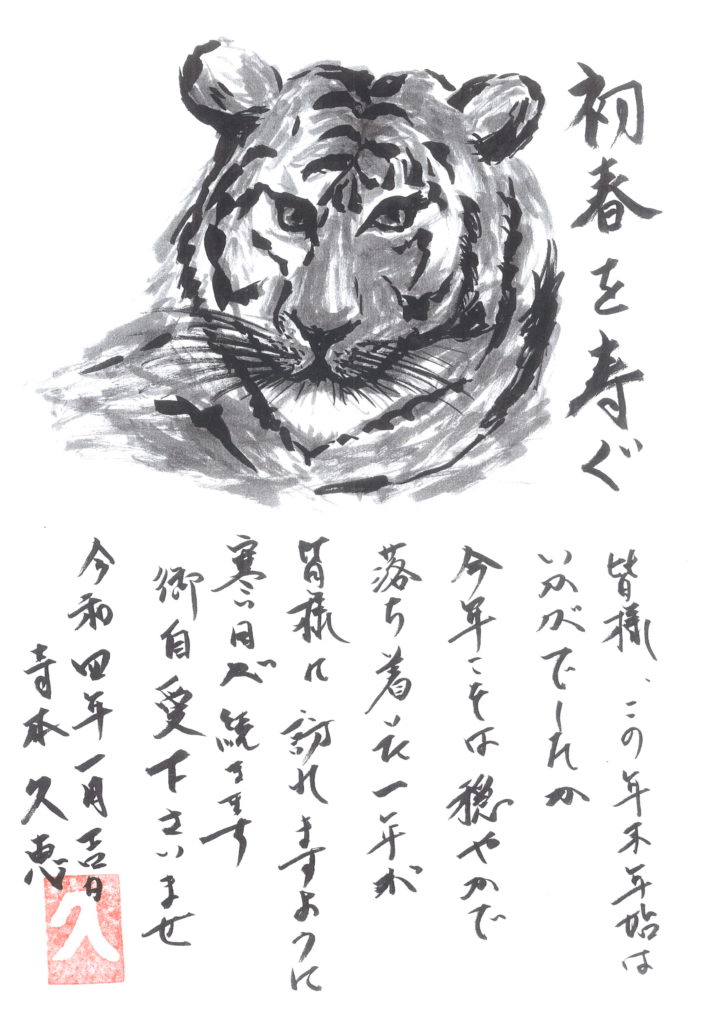 初春を寿ぐ
皆様、この年末年始は
いかがでしたか
今年こそは穏やかで
落ち着いた一年が
皆様に訪れますように
寒い日が続きます
御自愛下さいませ
令和四年一月吉日
寺本久恵
久